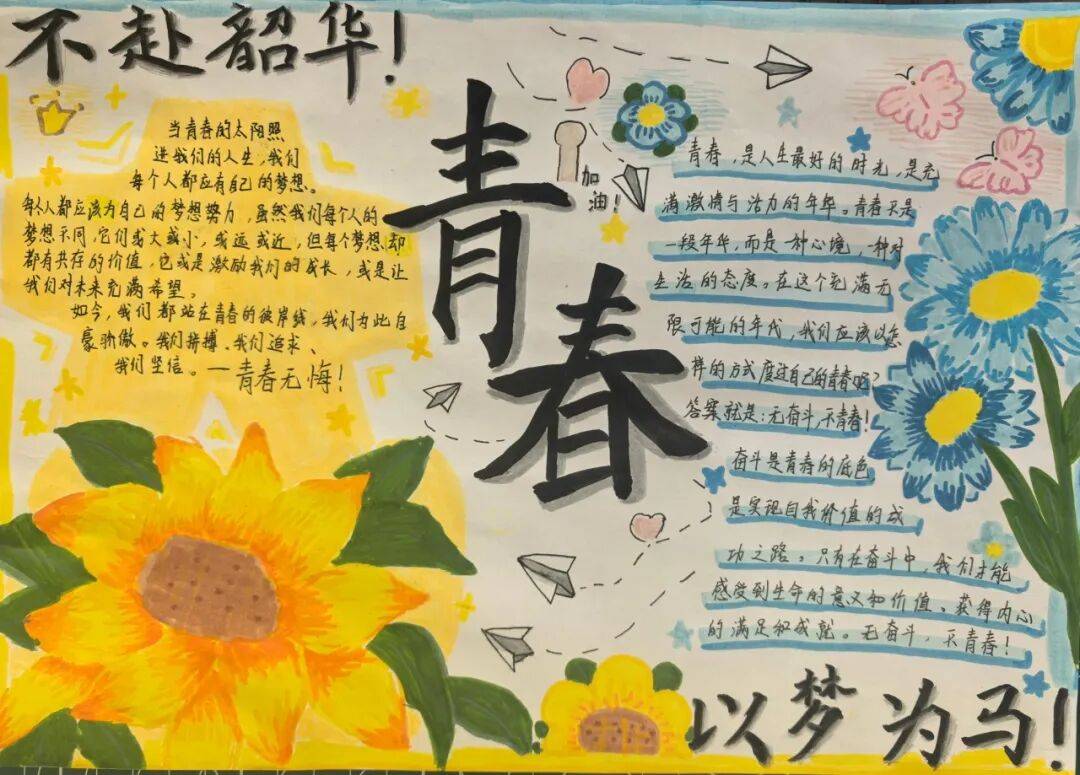 不赴韶华！
当青春的太阳照
进我们的人生，我们
每个人都应有自己的梦想。
每个人都应该为自己的梦想努力，虽然我们每个人的
梦想不同，它们或大或小，或远或近，但每个梦想，却
都有共存的价值，它或是激励我们的成长，或是让
我们对未来充满希望。
如今，我们都站在青春的彼岸线，我们为此自
豪骄傲。我们拼搏、我们追求、
我们坚信。—青春无悔！
青春
加油！
青春，是人生最好的时光，是充
满激情与活力的年华。青春不是
一段年华，而是一种心境，一种对
生活的态度。在这个充满无
限可能的年代，我们应该以怎
样的方式度过自己的青春呢？
答案就是：无奋斗，不青春！
奋斗是青春的底色
是实现自我价值的成
功之路。只有在奋斗中，我们才能
感受到生命的意义和价值。获得内心
的满足和成就。无奋斗，不青春！
以梦为马！